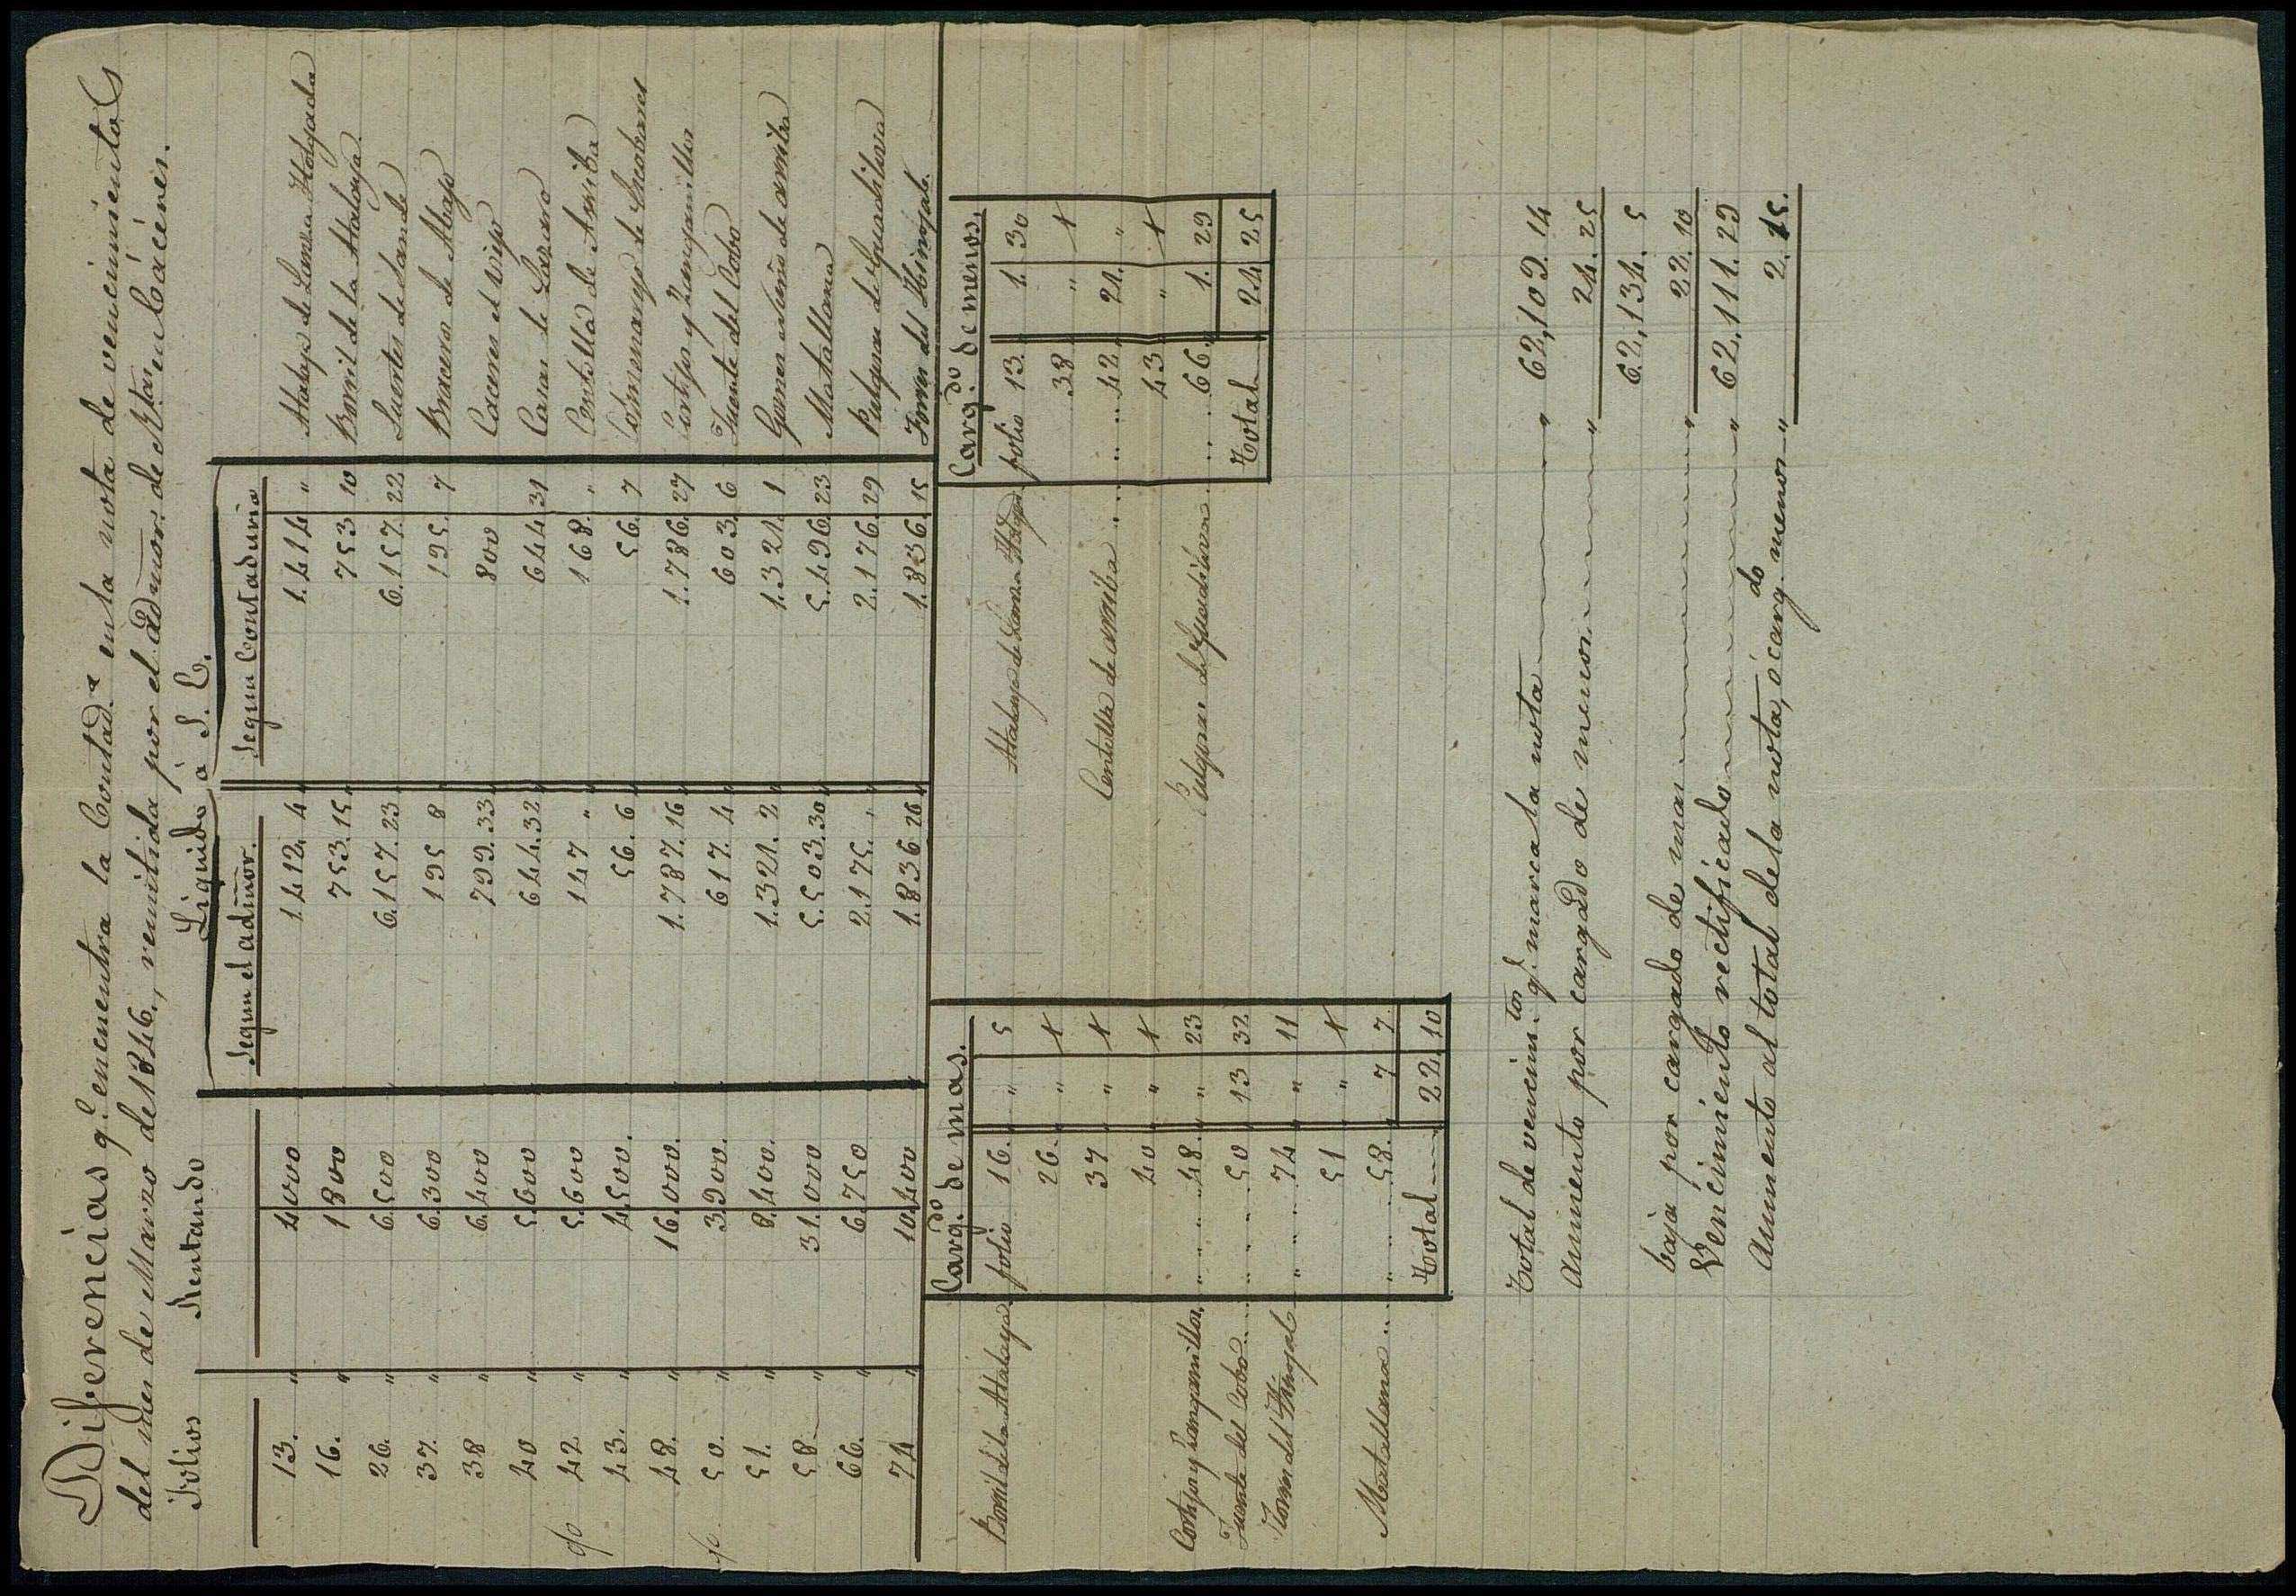 Diferencias q.e encuentra la Contad.a en la nota de vencimientos
del mes de Marzo de 1846, remitida por el admor. de Rtas en Cáceres.
Folios Rentando Liquido á S. E.
Segun el admor. Segun Contaduria
13. " 4000 1.412. 4 1.414 " Atalaya de Lama Holgada
16. " 1800 753. 15 753 10 Borril de la Atalaya
26. " 6.500 6.157. 23 6.157. 22 Suertes de
37. " 6.300 195 8 195. 7 Braceros de Abajo
38 " 6.400 799. 33 800 Caceres el viejo
40 " 5.600 644. 32 644 31 Casas de Lazaro
42 " 5.600 147 " 168. " Centolla de Arriba
43. " 4.500. 56. 6 56. 7 Colmenarejo de
48. " 16.000. 1.787. 16 1.786. 27 Cortijos y Zamganillos
50. " 3.900. 617. 4 603. 6 Fuente del Cobo
51. " 8.400. 1.321. 2 1.321. 1 de arriba
58 " 31.000 5.503. 30 5.496. 23 Matallana
66. " 6.750 2.175. " 2.176. 29 Pulgosas de Guadiloba
74 " 10.400 1.836 26 1.836. 15 Torres del Hinojal.
Carg.do de mas.
Borril de la Atalaya. folio 16. " 5
26. " 1
37 " 1
40 " 1
Cortijos y Zamganillos. " .. .. 48. " 23
Fuente del Cobo .... 50 13 32
Torres del Hinojal " .. .. 74 " 11
51 " 1
Matallana .. " .. .. 58. 7 7
Total 22. 10
Carg.do de menos.
Atalaya de Lama Holga folio 13. 1. 30
38 " 1
Centolla de arriba .. .. .. 42 21. "
43 " 1
Pulgosas de Guadiloba .. .. 66. 1. 29
Total 24 25
Total de vencim.tos q.e marca la nota " 62,109. 14
Aumento por cargado de menos " 24. 25
62,134. 5
baja por cargado de mas " 22. 10
Vencimiento rectificado " 62,111. 29
Aumento al total de la nota, ó carg.do menos " 2. 15.